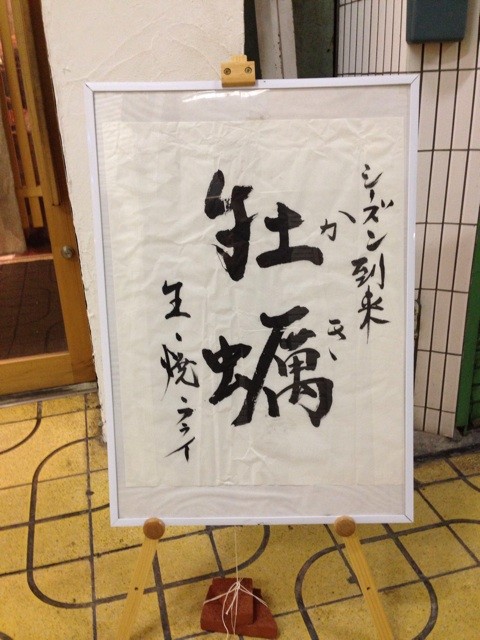 シーズン到来
牡蠣
かき
生、焼、フライ